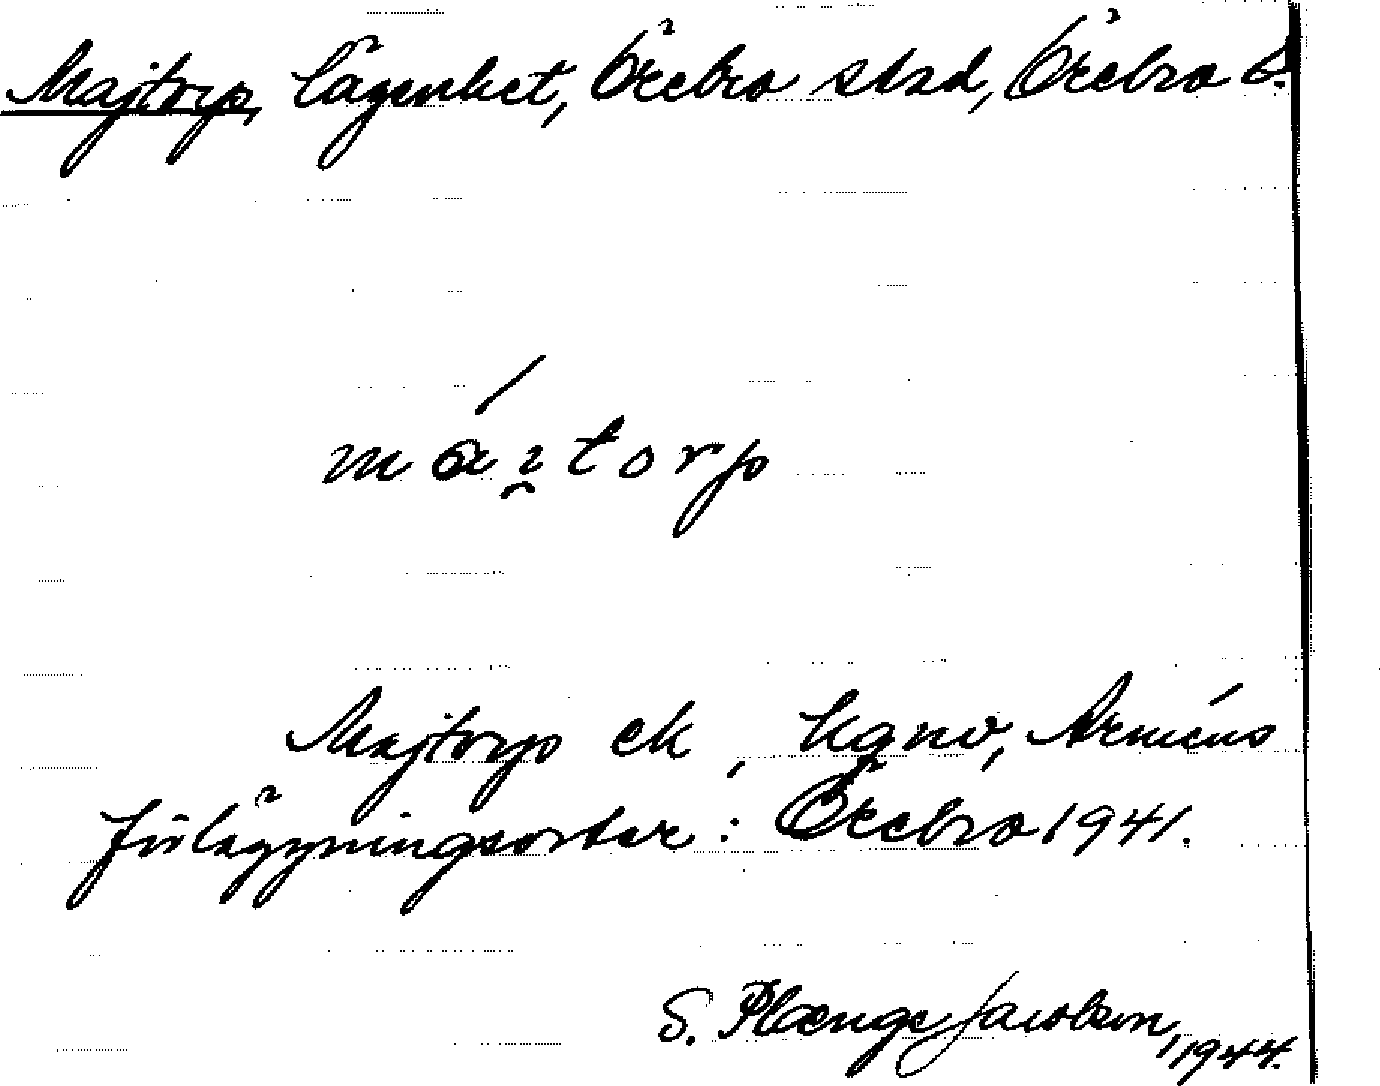 Majtorp, lägenhet, Örebro stad, Örebro l.
máı̯torp
Majtorp ek,
förläggningsorter: Örebro 1941.
S. Plænge Jacobson, 1944.